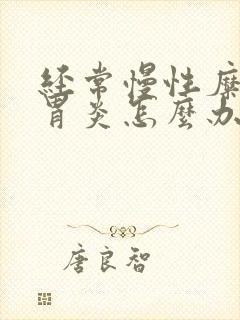 经常慢性糜
胃炎怎麼办
唐良智